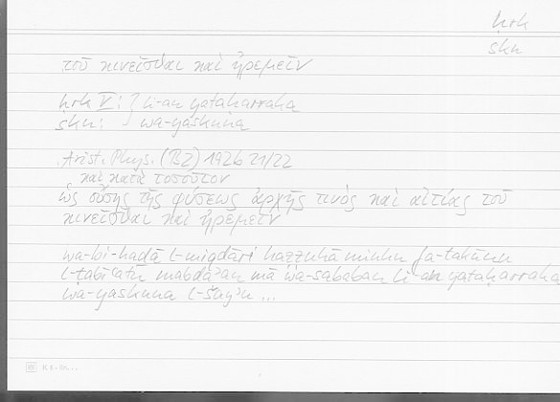 ḥrk
skn
τοῦ κινεῖσθαι καὶ ἠρεμεῖν
ḥrk V: } li-an yataḥarraka
skn: } wa-yaskuna
Arist. Phys. (B2) 192b 21/22
καὶ κατὰ τοσοῦτον
ὡς οὔσης τῆς φύσεως ἀρχῆς τινὸς καὶ αἰτίας τοῦ
κινεῖσθαι καὶ ἠρεμεῖν
wa-bi-hāḏā l-miqdāri ḥaẓẓuhā minhu fa-takūnu
l-ṭabīʿatu mabdaʾan mā wa-sababan li-an yataḥarraka
wa-yaskuna l-šayʾu ...